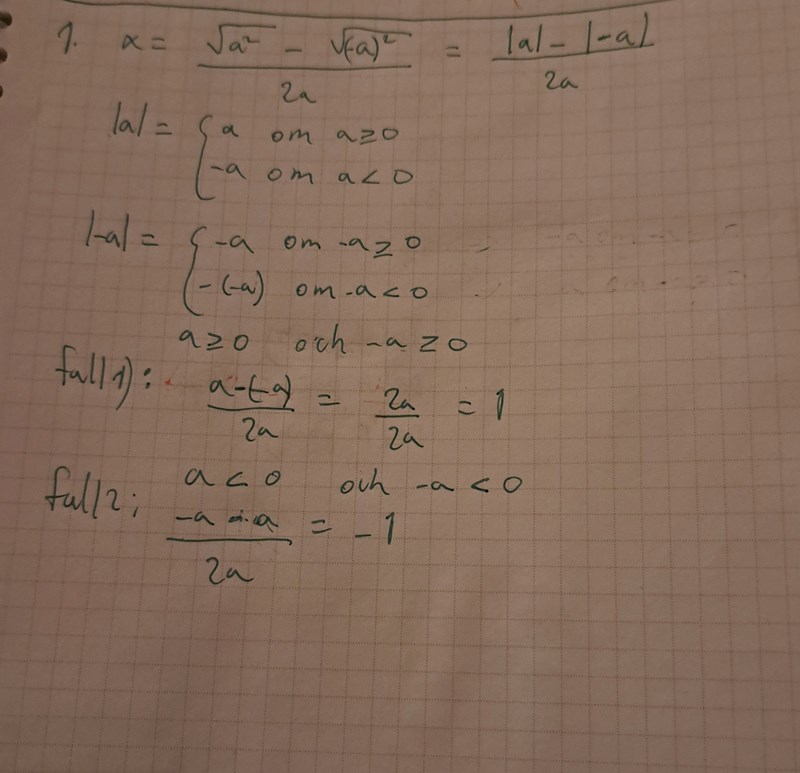 1. x = (√a² − √(-a)²) / 2a = (|a| − |-a|) / 2a
|a| = { a om a ≥ 0
-a om a < 0
|-a| = { -a om -a ≥ 0
-(-a) om -a < 0
a ≥ 0 och -a ≥ 0
fall 1): (a-(-a)) / 2a = 2a / 2a = 1
a < 0 och -a < 0
fall 2; (-a - a) / 2a = -1